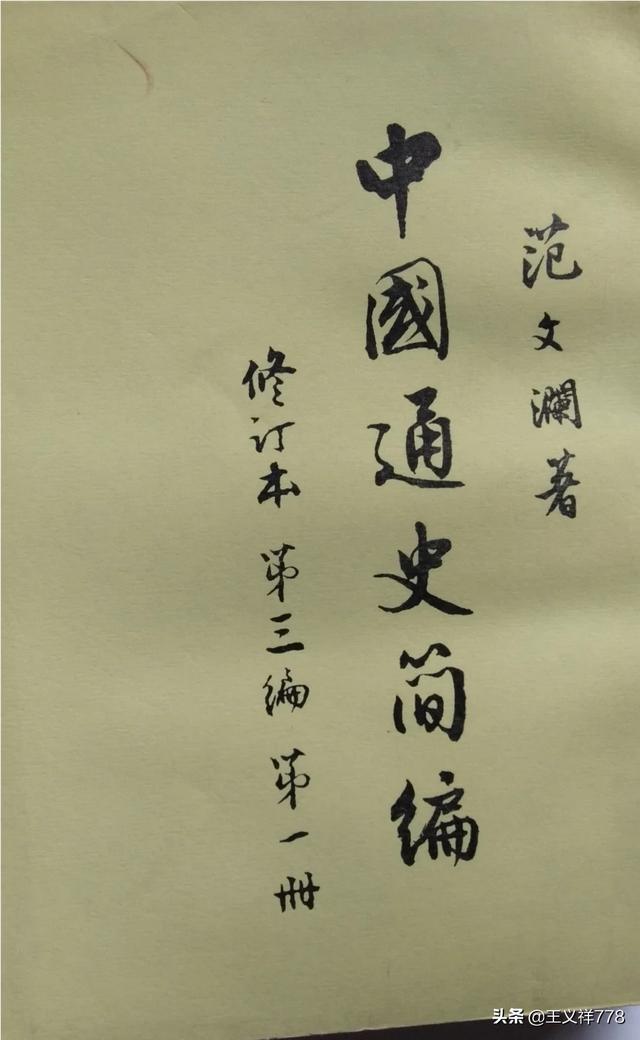 范文瀾著
中國通史简编
修订本 第三编 第一册
头条 @王义祥778